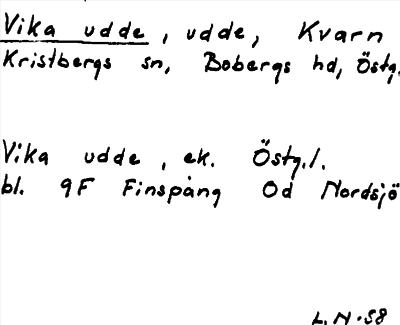 Vika udde, udde, Kvarn
Kristbergs sn, Bobergs hd, Östg.
Vika udde, ek. Östg.l.
bl. 9F Finspång Od Nordsjö
L.N.58